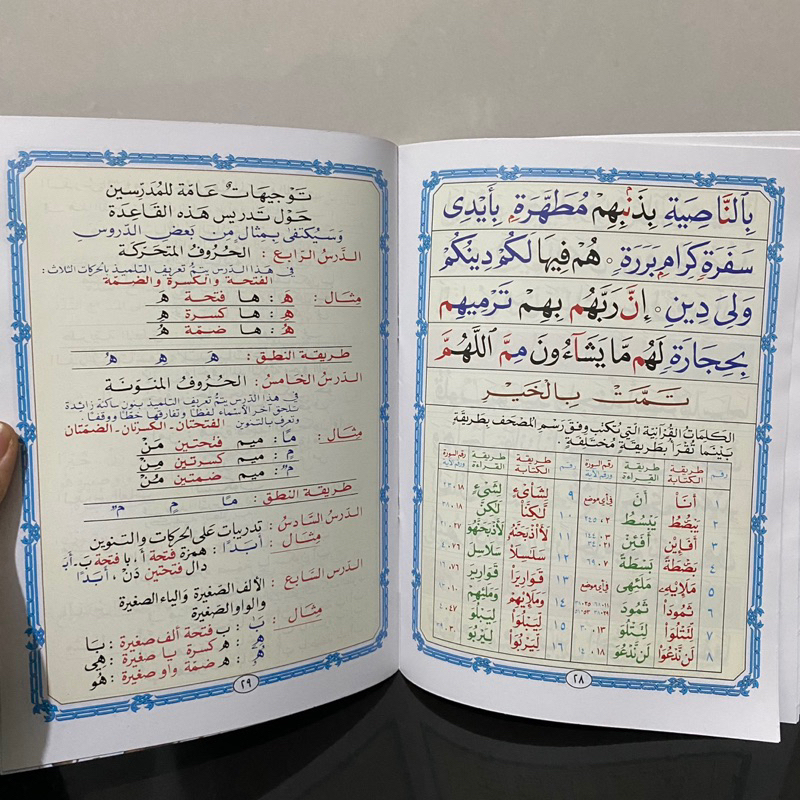 بِالنَّاصِيَةِ بِذَنۢبِهِمْ مُطَهَّرَةٍ بِأَيْدِى
سَفَرَةٍ كِرَامٍ بَرَرَةٍ هُمْ فِيهَا لَكُمْ دِينُكُمْ
وَلِىَ دِينِ إِنَّ رَبَّهُم بِهِمْ تَرْمِيهِم
بِحِجَارَةٍ لَهُم مَّا يَشَآءُونَ مِمَّ اللَّهُمَّ
تَمَّتْ بِالْخَيْرِ
الكلمات القرآنية التي تكتب وفق رسم المصحف بطريقة
بينما تقرأ بطريقة مختلفة .
رقم طريقة الكتابة طريقة القراءة رقم السورة ورقم الآية رقم طريقة الكتابة طريقة القراءة رقم السورة ورقم الآية
١ أَنَا أَنَ في أي موضع ٩ لِشَاىْءٍ لِشَىْءٍ
٢ يَبْصُۜطُ يَبْسُطُ ١٠ لَّٰكِنَّا لَٰكِنَّ
٣ أَفَإِيْن أَفَئِنْ ١١
٤ بَصْۜطَةً بَسْطَةً ١٢ سَلَٰسِلَا سَلَاسِلَ
٥ مَلَإِيْهِۦ مَلَئِهِى في أي موضع ١٣ قَوَارِيرَا قَوَارِيرَ
٦ ثَمُودَا ثَمُودَ ١٤ وَمَلَإِيْهِمْ وَمَلَئِهِمْ
٧ لِتَتْلُوَا لِتَتْلُوَ ١٥ لِيَبْلُوَا لِيَبْلُوَ
٨ لَن نَّدْعُوَا لَنْ نَدْعُوَ ١٦ لِيَرْبُوَا لِيَرْبُوَ
٢٨
توجيهات عامة للمدرسين
حول تدريس هذه القاعدة
وسيكتفى بمثال من بعض الدروس
الدرس الرابع : الحروف المتحركة
في هذا الدرس يتم تعريف التلميذ بالحركات الثلاث :
الفتحة والكسرة والضمة
مثال : هَ : ها فتحة هَ
هِ : ها كسرة هِ
هُ : ها ضمة هُ
طريقة النطق : هَ هِ هُ
الدرس الخامس : الحروف المنونة
في هذا الدرس يتم تعريف التلميذ بنون ساكنة زائدة
تلحق آخر الأسماء لفظًا وتفارقها خطًا ووقفًا .
وتعرف بالتنوين الفتحتان - الكسرتان - الضمتان
مثال : مًا : ميم فتحتين مَنْ
مٍ : ميم كسرتين مِنْ
مٌ : ميم ضمتين مُنْ
طريقة النطق : مًا مٍ مٌ
الدرس السادس : تدريبات على الحركات والتنوين
مثال : أَبَدًا : همزة فتحة أَ ، با فتحة بَ - أَبَ
دال فتحتين دَنْ ، أَبَدًا
الدرس السابع : الألف الصغيرة والياء الصغيرة
والواو الصغيرة
مثال : بَٰ : ب فتحة ألف صغيرة : بَا
هِۦ : ه كسرة يا صغيرة : هِى
هُۥ : ه ضمة واو صغيرة : هُو
٢٩